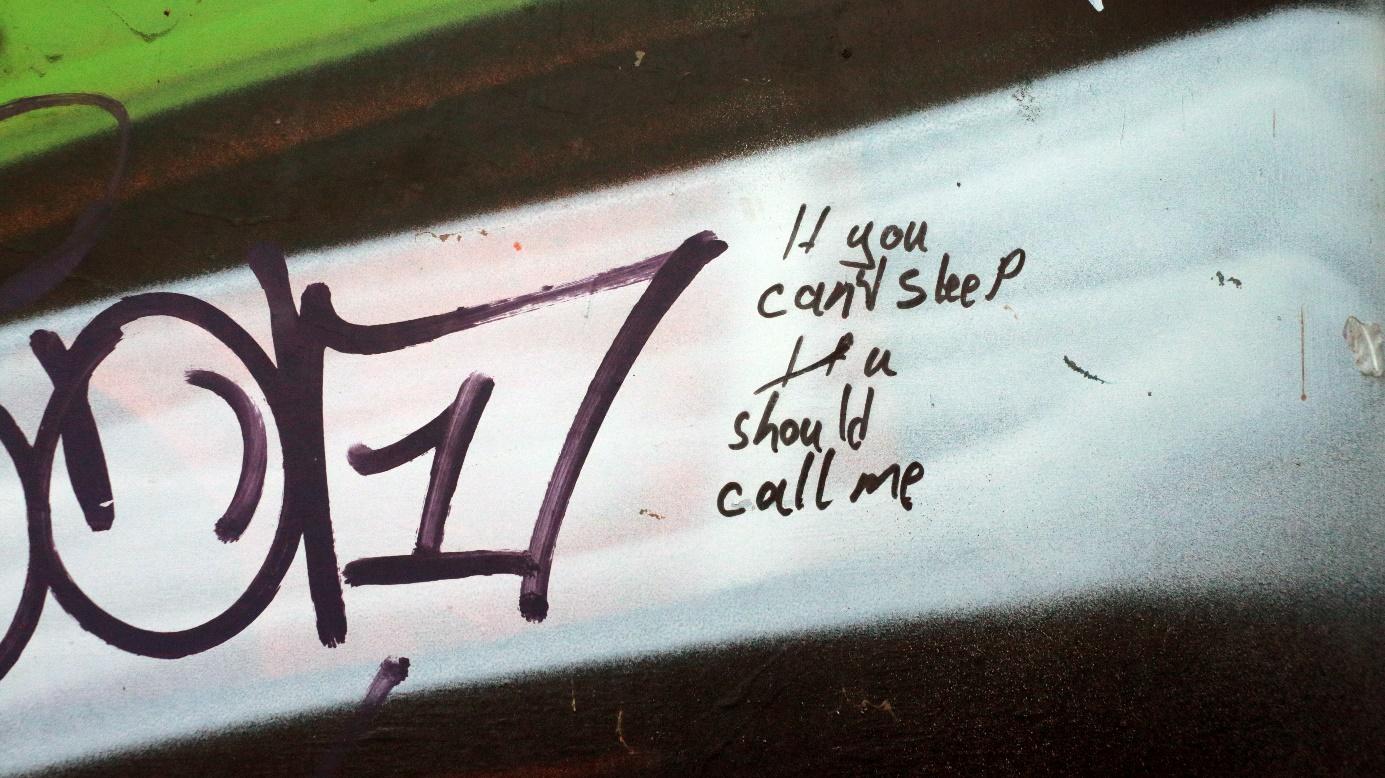 If you
can't sleep
If u
should
call me